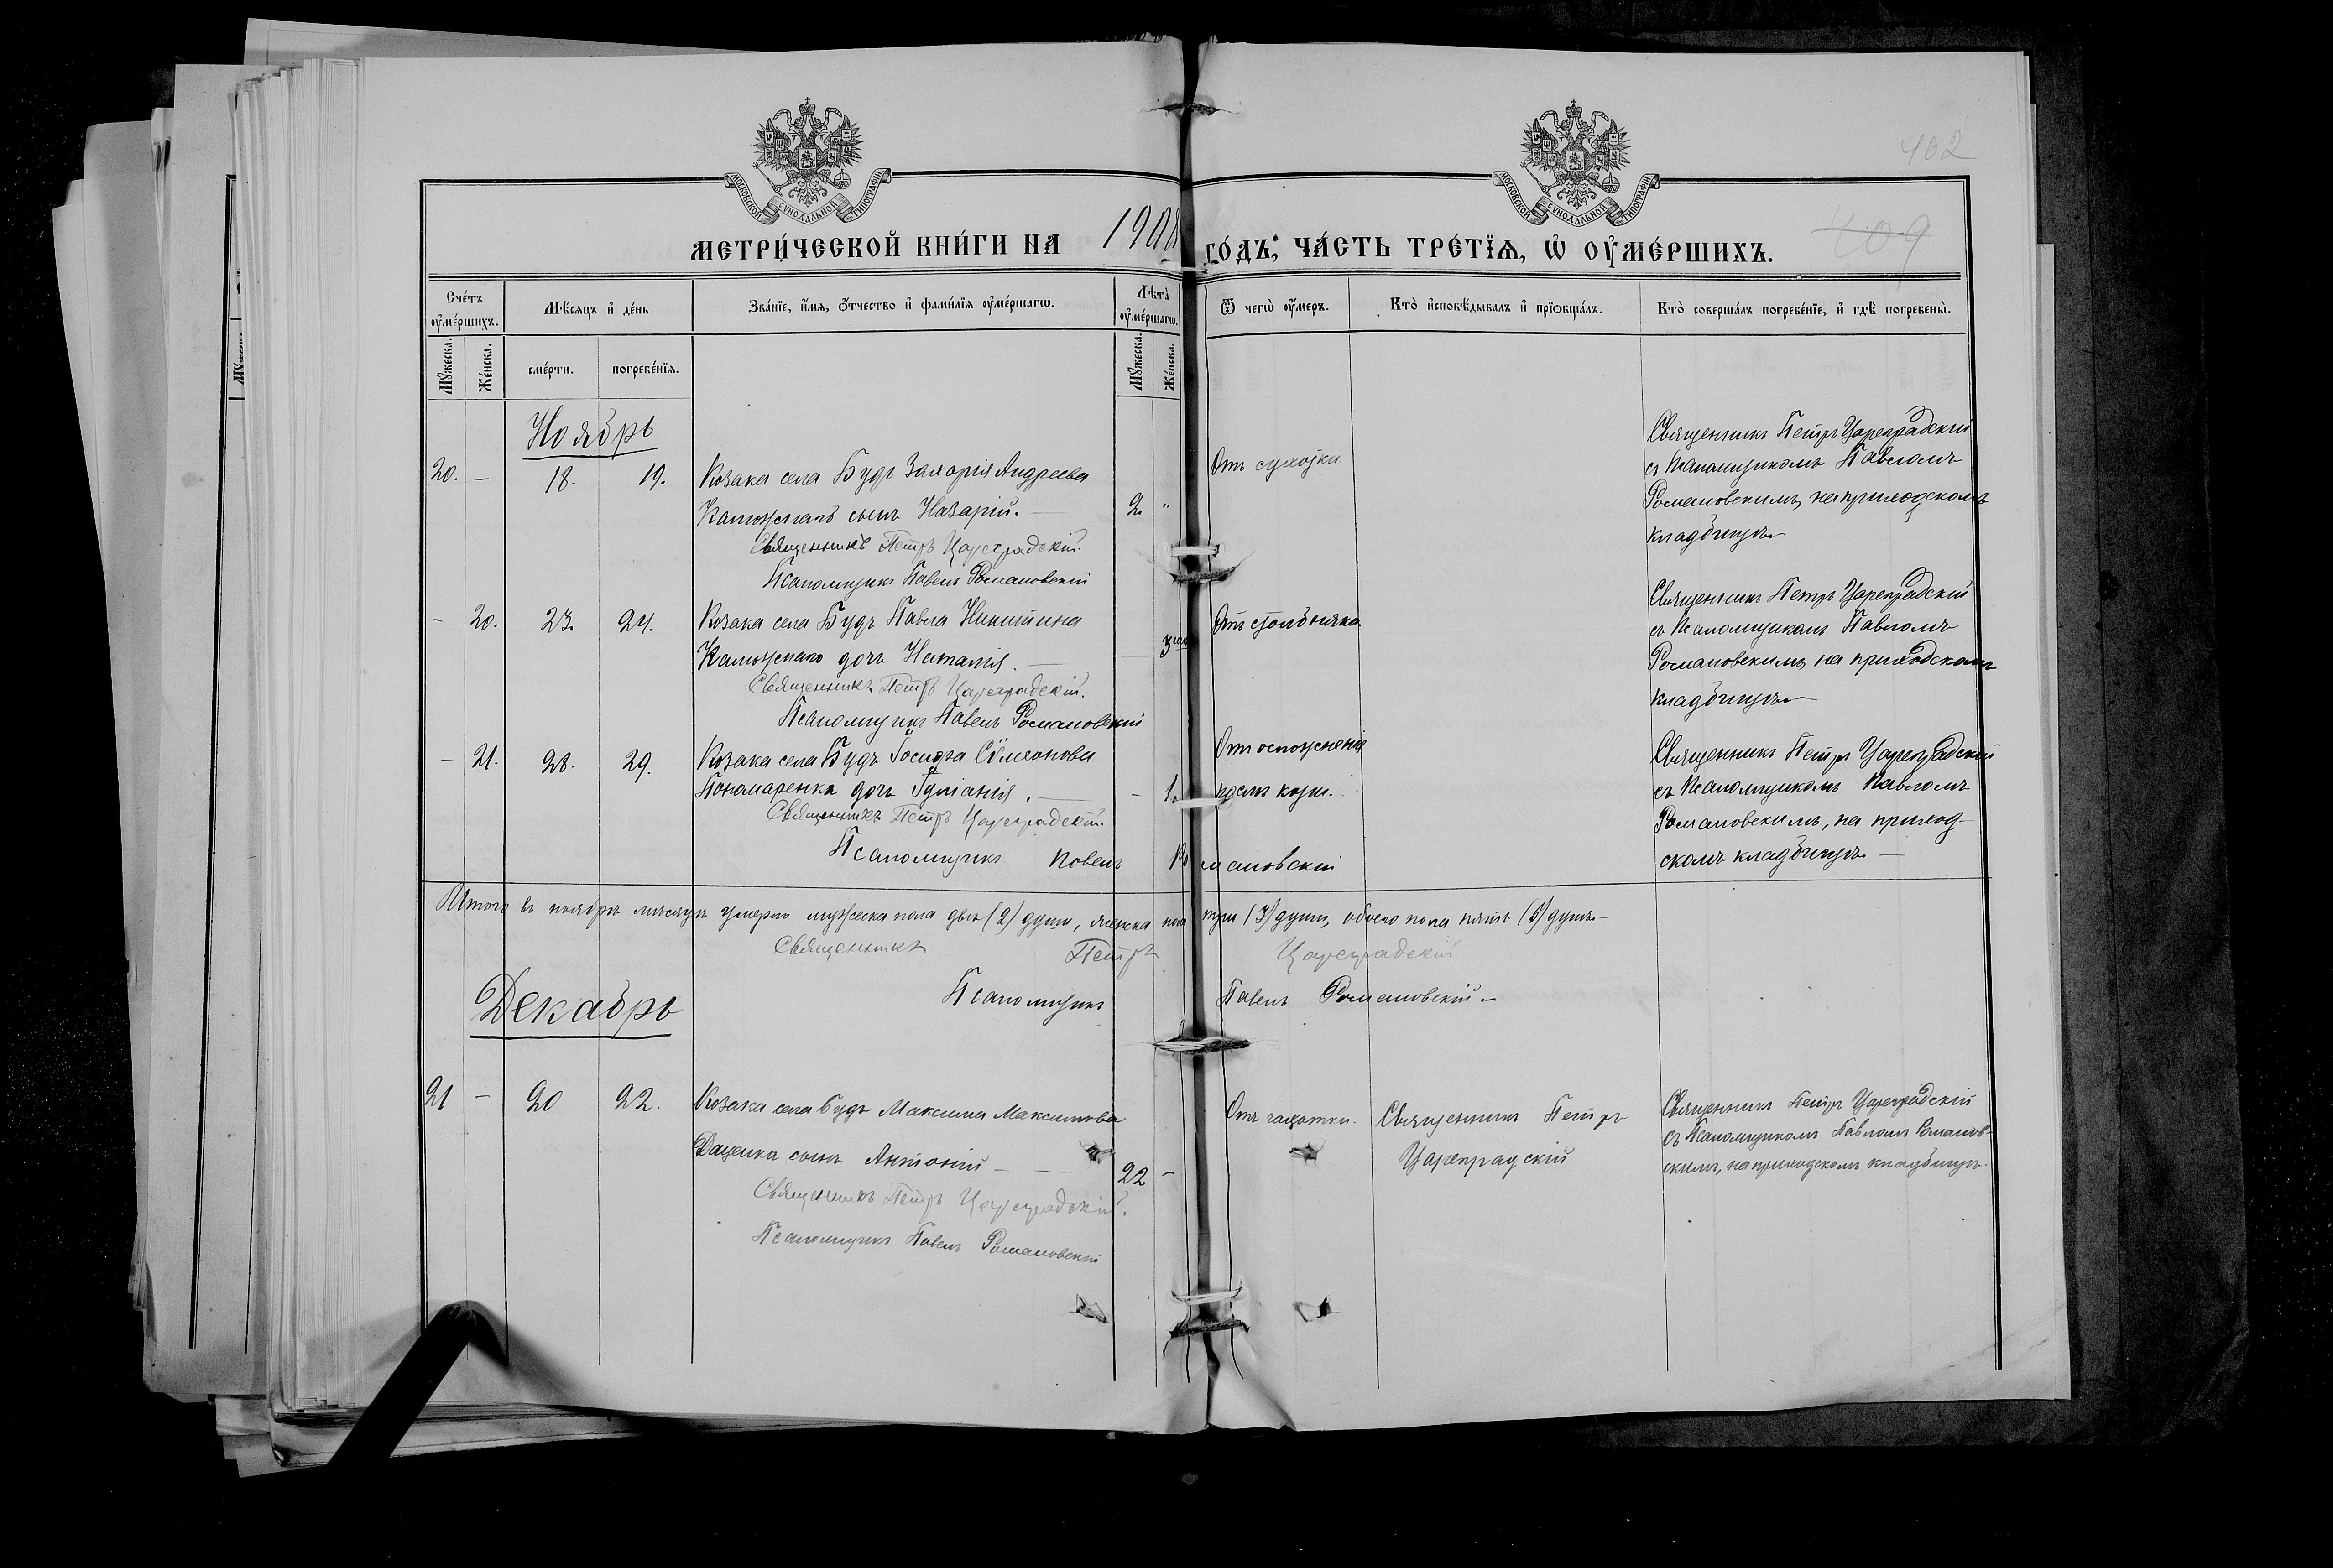 402
409
МОСКОВСКОЙ СѴНОДАЛЬНОЙ ТИПОГРАФІИ
МОСКОВСКОЙ СѴНОДАЛЬНОЙ ТИПОГРАФІИ
МЕТРИ́ЧЕСКОЙ КНИ́ГИ НА 1908 ГО́ДЪ, ЧА́СТЬ ТРЕ́ТЇѦ, Ѡ ОУ҆МЕ́РШИХЪ.
Сче́тъ оу҆ме́ршихъ.
Мѣ́сѧцъ и҆ де́нь
Зва́нїе, и҆́мѧ, ѻ҆́тчество и҆ фами́лїѧ оу҆ме́ршагѡ.
Лѣ́та оу҆ме́ршагѡ.
Ѿ чегѡ̀ оу҆́меръ.
Кто̀ и҆сповѣ́дывалъ и҆ прїѡбща́лъ.
Кто̀ соверша́лъ погребе́нїе, и҆ гдѣ̀ погребены̀.
Мꙋ́жеска.
Же́нска.
сме́рти.
погребе́нїѧ.
Мꙋ́жеска.
Же́нска.
Ноябрь
20. — 18. 19.
Козака села Будъ Захарія Андреева
сынъ Назарій. —
2. "
Священникъ Петръ Цареградскій.
Псаломщикъ Павелъ Романовскій
Священникъ Петръ Цареградскій
съ Псаломщикомъ Павломъ
Романовскимъ, на приходскомъ
кладбищѣ
— 20. 23. 24.
Козака села Будъ Павла Никитина
дочь Наталія. —
Священникъ Петръ Цареградскій.
Псаломщикъ Павелъ Романовскій
Отъ столбняка
Священникъ Петръ Цареградскій
съ Псаломщикомъ Павломъ
Романовскимъ, на приходскомъ
кладбищѣ
— 21. 28. 29.
Козака села Будъ Іосифа Сѵмеонова
Пономаренка дочь Іуліанія. —
— 1.
Священникъ Петръ Цареградскій.
Псаломщикъ Павелъ Романовскій
Отъ осложненія
послѣ кори.
Священникъ Петръ Цареградскій
съ Псаломщикомъ Павломъ
Романовскимъ, на приход-
скомъ кладбищѣ —
Итого въ ноябрѣ мѣсяцѣ умерло мужеска пола двѣ (2) души, женска пола три (3) души, обоего пола пять (5) душъ.
Священникъ Петръ Цареградскій
Псаломщикъ Павелъ Романовскій
Декабрь
21 — 20 22.
Козака села Будъ Максима Максимова
Даценка сынъ Антоній — —
22 —
Священникъ Петръ Цареградскій.
Псаломщикъ Павелъ Романовскій
Отъ чахотки.
Священникъ Петръ
Цареградскій
Священникъ Петръ Цареградскій
съ Псаломщикомъ Павломъ Романов-
скимъ, на приходскомъ кладбищѣ.